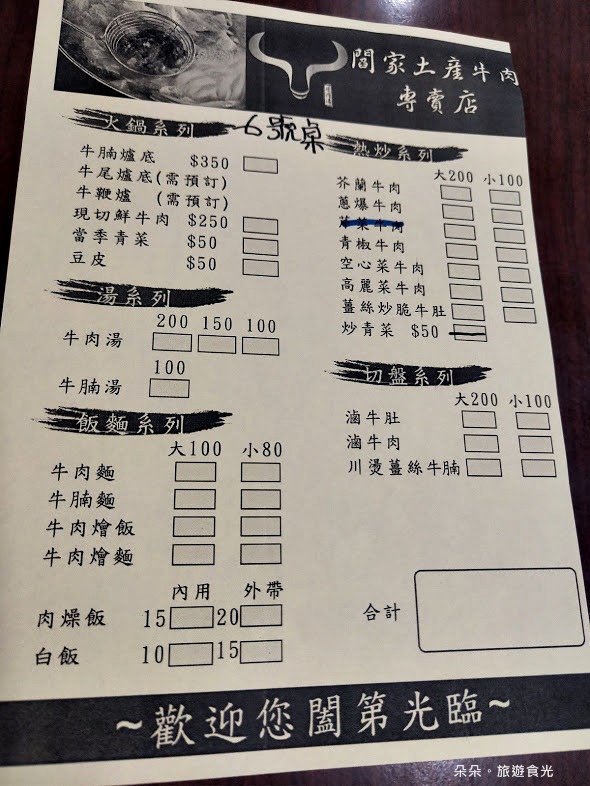 閻家土產牛肉
專賣店
6號桌
火鍋系列
牛腩爐底 $350
牛尾爐底(需預訂)
牛鞭爐 (需預訂)
現切鮮牛肉 $250
當季青菜 $50
豆皮 $50
湯系列
200 150 100
牛肉湯
100
牛腩湯
飯麵系列
大100 小80
牛肉麵
牛腩麵
牛肉燴飯
牛肉燴麵
內用 外帶
肉燥飯 15 20
白飯 10 15
熱炒系列
大200 小100
芥蘭牛肉
蔥爆牛肉
菜牛肉
青椒牛肉
空心菜牛肉
高麗菜牛肉
薑絲炒脆牛肚
炒青菜 $50
切盤系列
大200 小100
滷牛肚
滷牛肉
川燙薑絲牛腩
合計
~歡迎您闔第光臨~
朵朵。旅遊食光